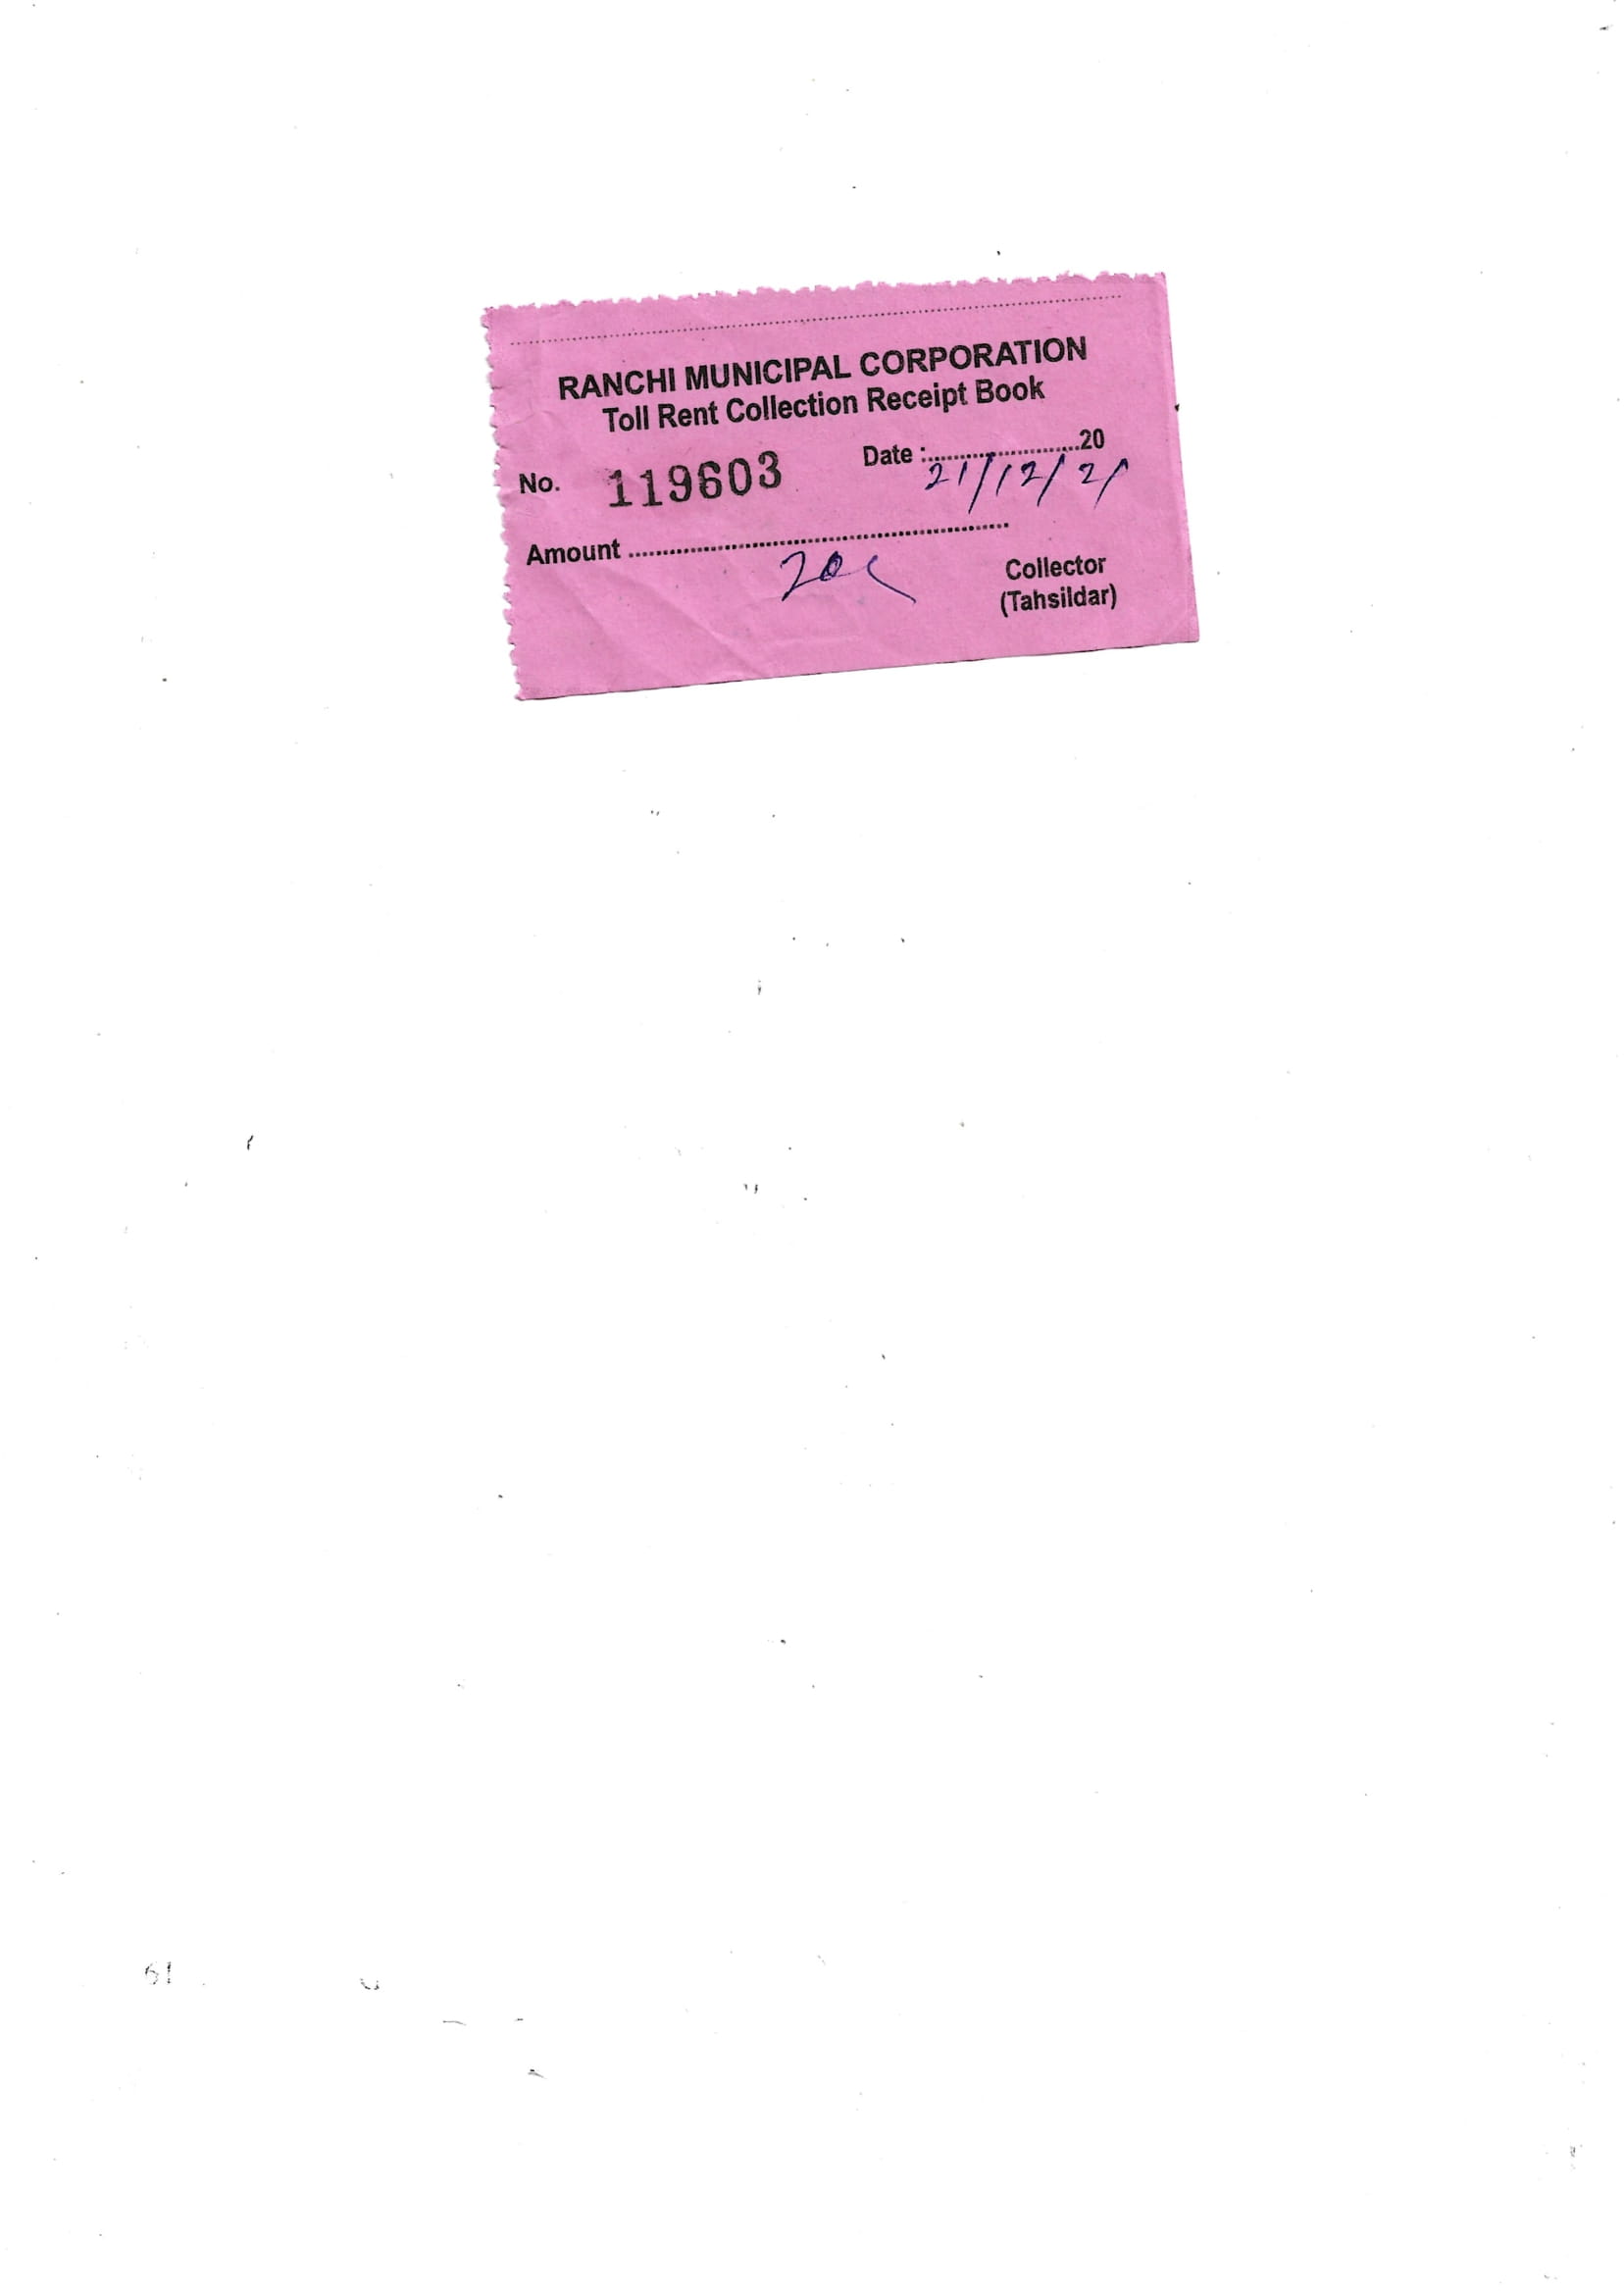 RANCHI MUNICIPAL CORPORATION
Toll Rent Collection Receipt Book
No. 119603 Date :........................20
21/12/21
Amount ........................................................
Collector
(Tahsildar)